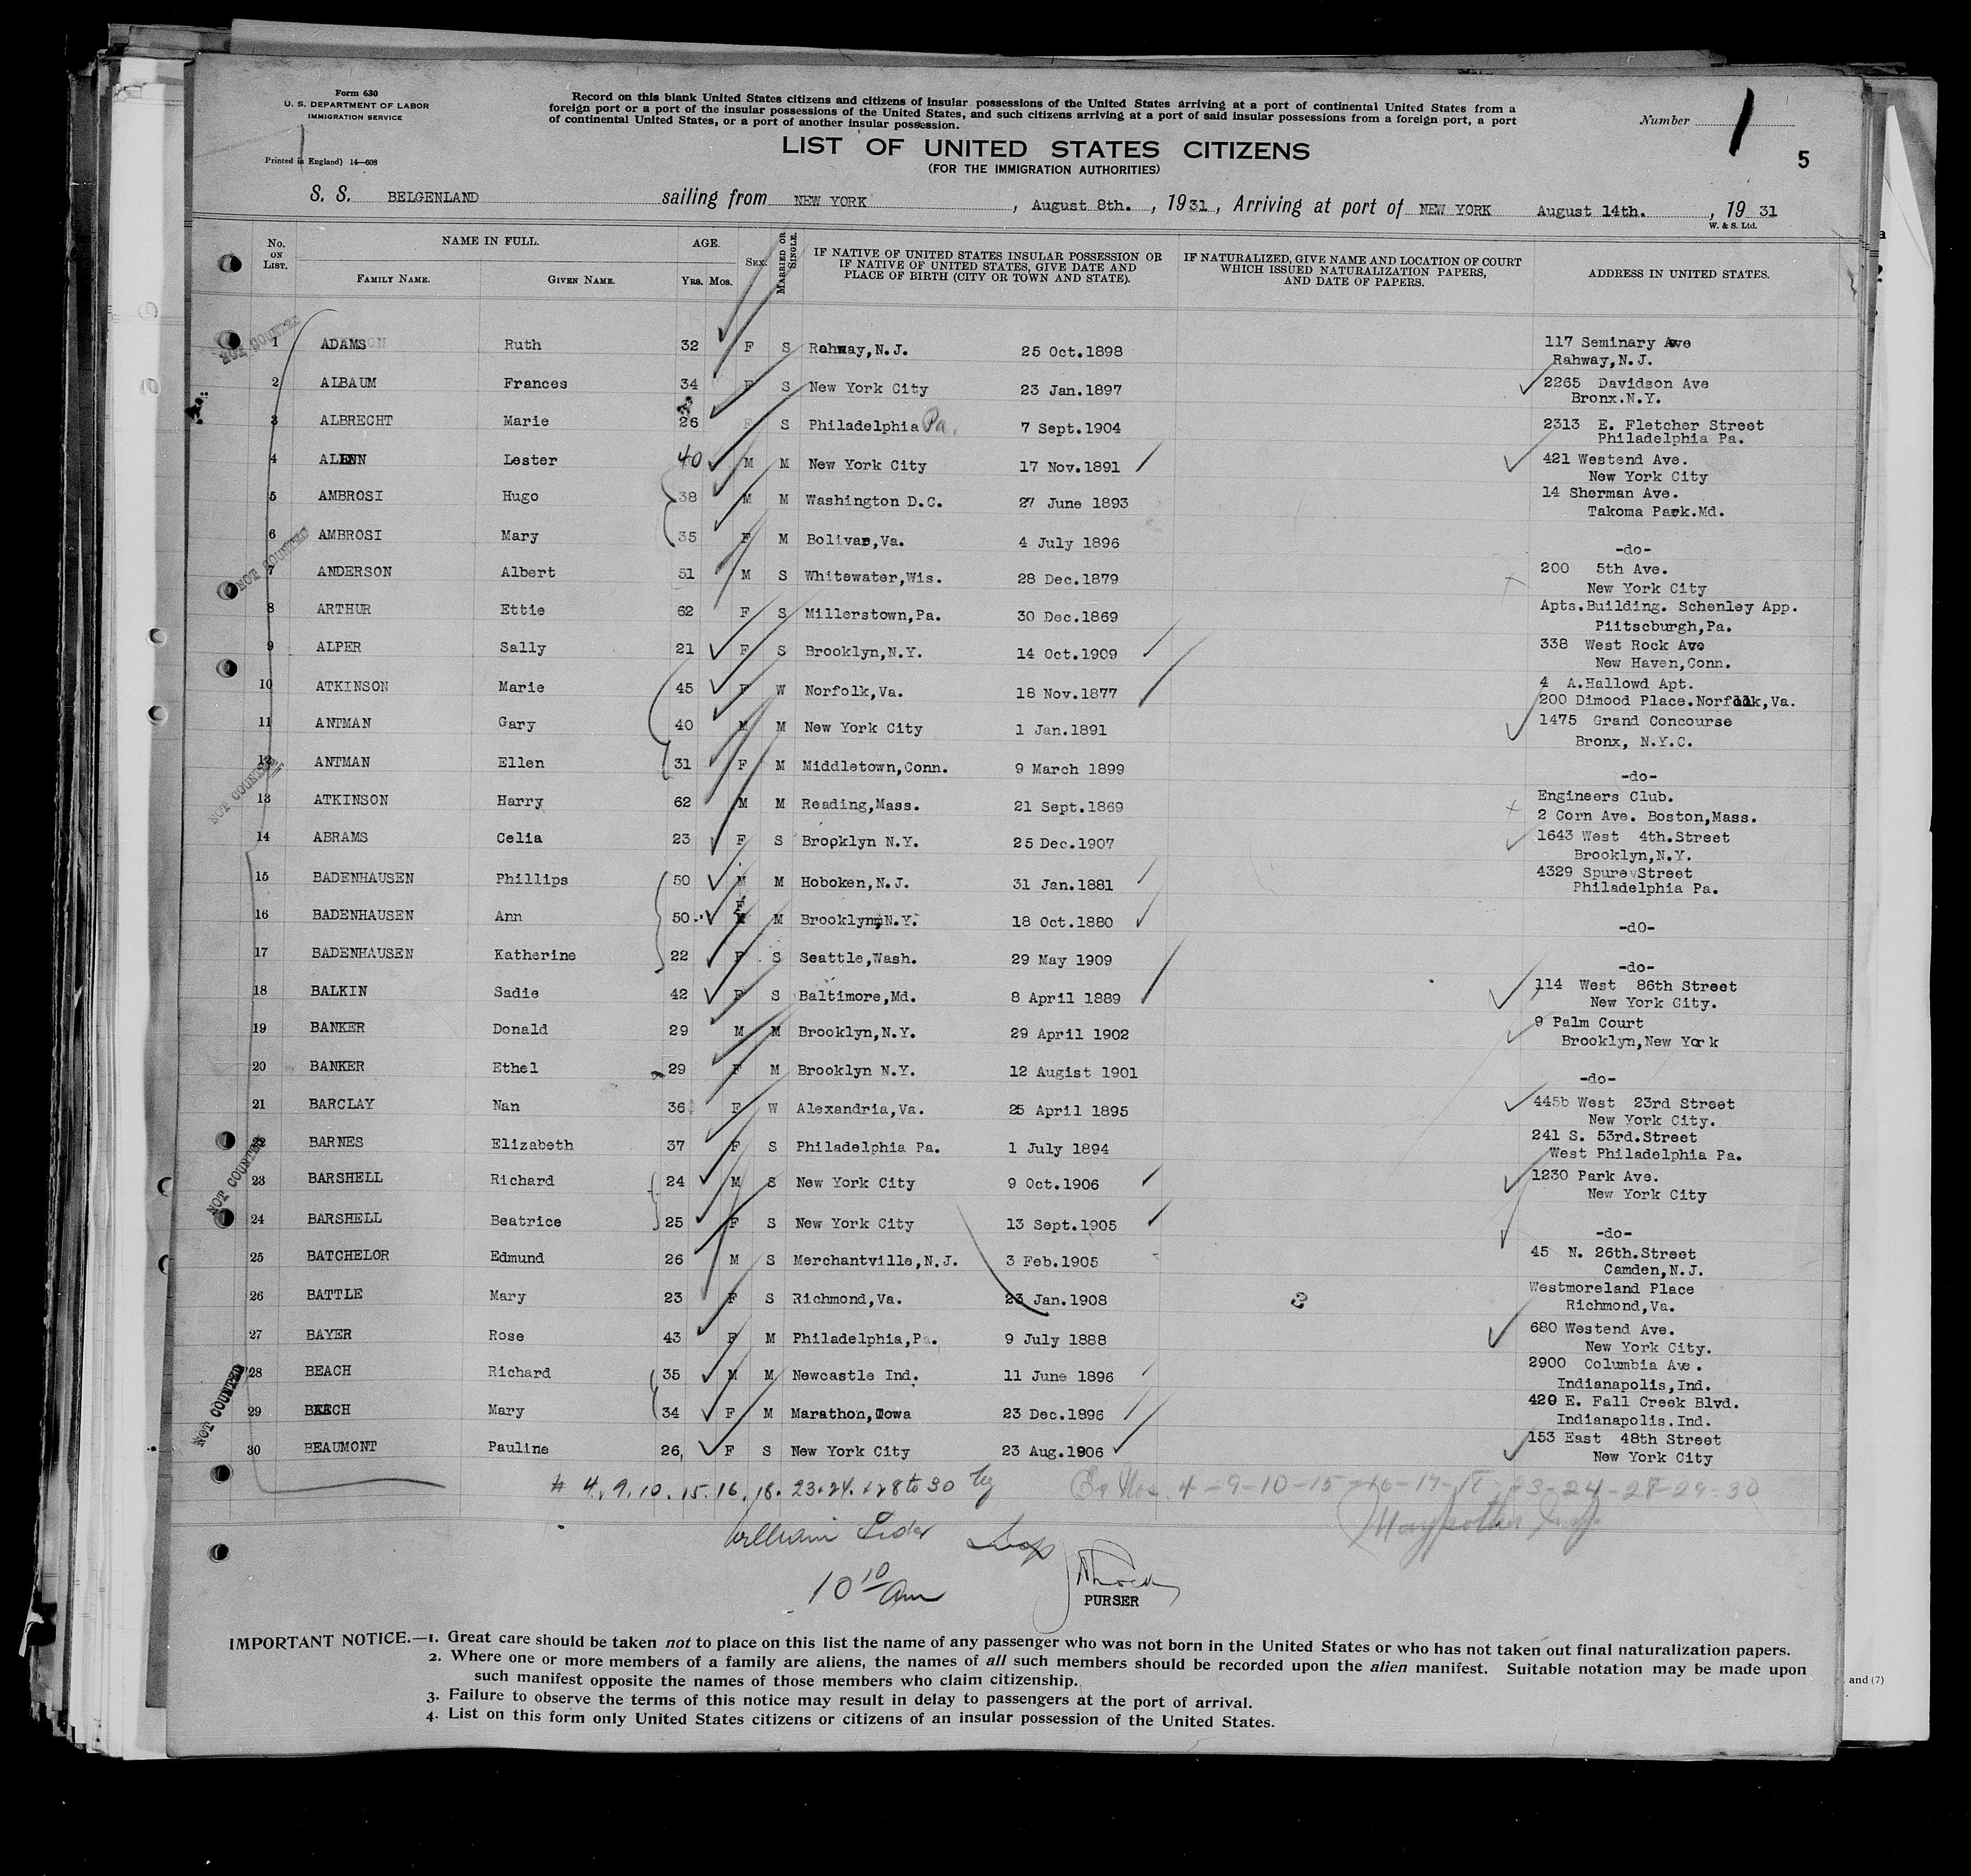 Form 630
U. S. DEPARTMENT OF LABOR
IMMIGRATION SERVICE
Printed in England) 14—608
Record on this blank United States citizens and citizens of insular possessions of the United States arriving at a port of continental United States from a
foreign port or a port of the insular possessions of the United States, and such citizens arriving at a port of said insular possessions from a foreign port, a port
of continental United States, or a port of another insular possession.
Number 1
5
LIST OF UNITED STATES CITIZENS
(FOR THE IMMIGRATION AUTHORITIES)
S. S. BELGENLAND sailing from NEW YORK , August 8th. , 1931 , Arriving at port of NEW YORK August 14th. , 19 31
W. & S. Ltd.
No. ON LIST. NAME IN FULL. FAMILY NAME. GIVEN NAME. AGE. YRS. MOS. SEX. MARRIED OR SINGLE. IF NATIVE OF UNITED STATES INSULAR POSSESSION OR IF NATIVE OF UNITED STATES, GIVE DATE AND PLACE OF BIRTH (CITY OR TOWN AND STATE). IF NATURALIZED, GIVE NAME AND LOCATION OF COURT WHICH ISSUED NATURALIZATION PAPERS, AND DATE OF PAPERS. ADDRESS IN UNITED STATES.
NOT COUNTED
1 ADAMS Ruth 32 F S Rahway,N.J. 25 Oct.1898 117 Seminary Ave
Rahway,N.J.
2 ALBAUM Frances 34 F S New York City 23 Jan.1897 2265 Davidson Ave
Bronx.N.Y.
3 ALBRECHT Marie 26 F S Philadelphia Pa. 7 Sept.1904 2313 E. Fletcher Street
Philadelphia Pa.
4 ALLEN Lester 40 M M New York City 17 Nov.1891 421 Westend Ave.
New York City
5 AMBROSI Hugo 38 M M Washington D.C. 27 June 1893 14 Sherman Ave.
Takoma Park.Md.
6 AMBROSI Mary 35 F M Bolivar,Va. 4 July 1896 -do-
NOT COUNTED
7 ANDERSON Albert 51 M S Whitewater,Wis. 28 Dec.1879 200 5th Ave.
New York City
8 ARTHUR Ettie 62 F S Millerstown,Pa. 30 Dec.1869 Apts.Building. Schenley App.
Piitscburgh,Pa.
9 ALPER Sally 21 F S Brooklyn,N.Y. 14 Oct.1909 338 West Rock Ave
New Haven,Conn.
10 ATKINSON Marie 45 F W Norfolk,Va. 18 Nov.1877 4 A.Hallowd Apt.
200 Dimood Place.Norfolk,Va.
11 ANTMAN Gary 40 M M New York City 1 Jan.1891 1475 Grand Concourse
Bronx, N.Y.C.
12 ANTMAN Ellen 31 F M Middletown,Conn. 9 March 1899 -do-
NOT COUNTED
13 ATKINSON Harry 62 M M Reading,Mass. 21 Sept.1869 Engineers Club.
2 Corn Ave. Boston,Mass.
14 ABRAMS Celia 23 F S Bropklyn N.Y. 25 Dec.1907 1643 West 4th.Street
Brooklyn,N.Y.
15 BADENHAUSEN Phillips 50 M M Hoboken,N.J. 31 Jan.1881 4329 Spure Street
Philadelphia Pa.
16 BADENHAUSEN Ann 50 F M Brooklyn,N.Y. 18 Oct.1880 -dO-
17 BADENHAUSEN Katherine 22 F S Seattle,Wash. 29 May 1909 -do-
18 BALKIN Sadie 42 F S Baltimore,Md. 8 April 1889 114 West 86th Street
New York City.
19 BANKER Donald 29 M M Brooklyn,N.Y. 29 April 1902 9 Palm Court
Brooklyn,New York
20 BANKER Ethel 29 F M Brooklyn N.Y. 12 Augist 1901 -do-
21 BARCLAY Nan 36 F W Alexandria,Va. 25 April 1895 445b West 23rd Street
New York City.
22 BARNES Elizabeth 37 F S Philadelphia Pa. 1 July 1894 241 S. 53rd.Street
West Philadelphia Pa.
NOT COUNTED
23 BARSHELL Richard 24 M S New York City 9 Oct.1906 1230 Park Ave.
New York City
24 BARSHELL Beatrice 25 F S New York City 13 Sept.1905 -do-
25 BATCHELOR Edmund 26 M S Merchantville,N.J. 3 Feb.1905 45 N. 26th.Street
Camden,N.J.
26 BATTLE Mary 23 F S Richmond,Va. 23 Jan.1908 Westmoreland Place
Richmond,Va.
27 BAYER Rose 43 F M Philadelphia,Pa. 9 July 1888 680 Westend Ave.
New York City.
28 BEACH Richard 35 M M Newcastle Ind. 11 June 1896 2900 Columbia Ave.
Indianapolis,Ind.
NOT COUNTED
29 BEACH Mary 34 F M Marathon,Iowa 23 Dec.1896 420 E. Fall Creek Blvd.
Indianapolis.Ind.
30 BEAUMONT Pauline 26, F S New York City 23 Aug.1906 153 East 48th Street
New York City
# 4. 9. 10. 15. 16. 18. 23. 24. + 28 to 30
4-9-10-15-16-17-18-23-24-28-29-30
William
10 10 am
PURSER
IMPORTANT NOTICE.—1. Great care should be taken not to place on this list the name of any passenger who was not born in the United States or who has not taken out final naturalization papers.
2. Where one or more members of a family are aliens, the names of all such members should be recorded upon the alien manifest. Suitable notation may be made upon
such manifest opposite the names of those members who claim citizenship.
3. Failure to observe the terms of this notice may result in delay to passengers at the port of arrival.
4. List on this form only United States citizens or citizens of an insular possession of the United States.
and (7)